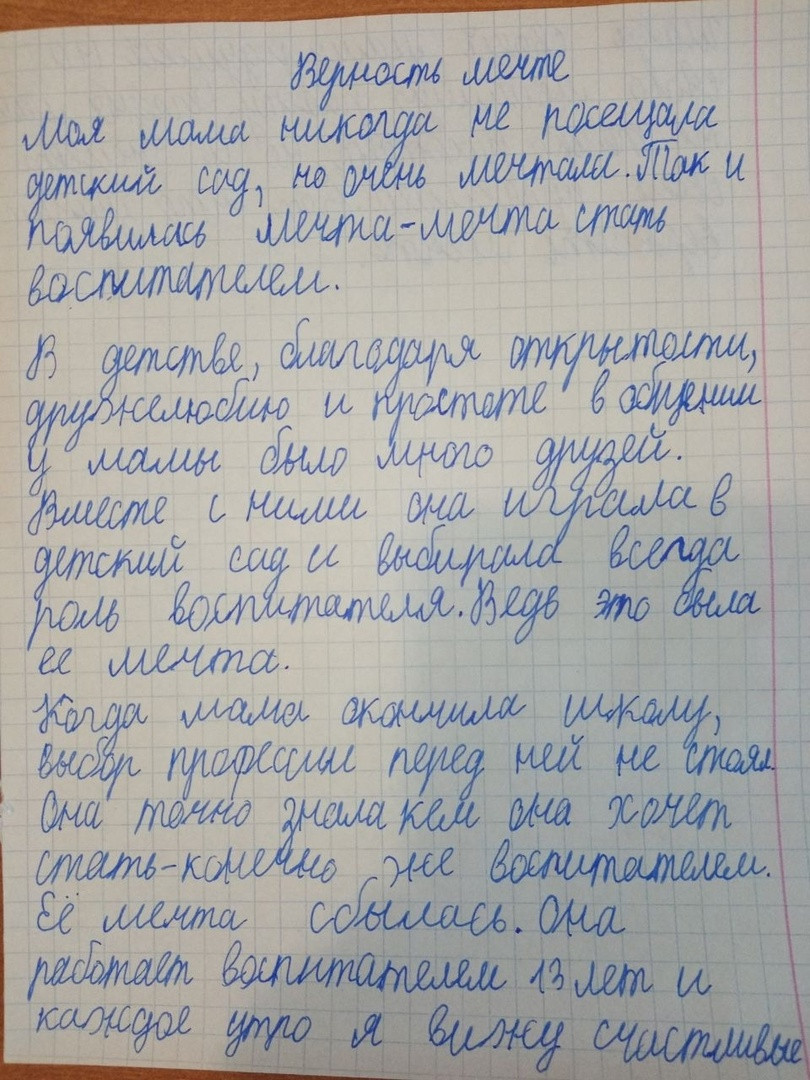 Верность мечте
Моя мама никогда не посещала
детский сад, но очень мечтала. Так и
появилась мечта-мечта стать
воспитателем.
В детстве, благодаря открытости,
дружелюбию и простоте в общении
у мамы было много друзей.
Вместе с ними она играла в
детский сад и выбирала всегда
роль воспитателя. Ведь это была
ее мечта.
Когда мама окончила школу,
выбор профессии перед ней не стоял.
Она точно знала кем она хочет
стать-конечно же воспитателем.
Её мечта сбылась. Она
работает воспитателем 13 лет и
каждое утро я вижу счастливые